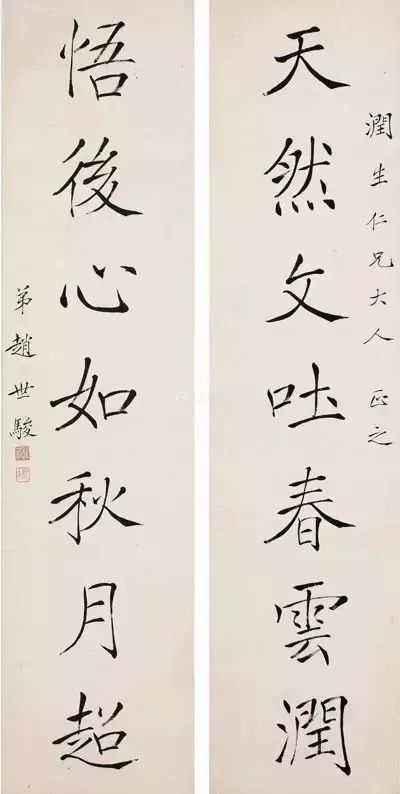 潤生仁兄大人 正之
天然文吐春雲潤
悟後心如秋月超
弟趙世駿